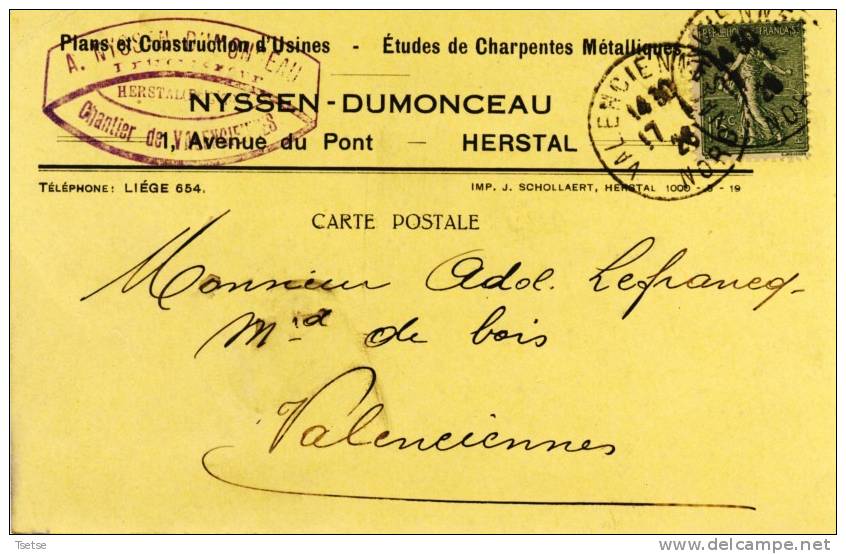 Plans et Construction d'Usines - Études de Charpentes Métalliques
NYSSEN-DUMONCEAU
1, Avenue du Pont — HERSTAL
A. NYSSEN-DUMONCEAU
HERSTAL
Chantier de VALENCIENNES
VALENCIENNES
14 30
17
NORD
TÉLÉPHONE: LIÉGE 654.
IMP. J. SCHOLLAERT, HERSTAL 1000 - 5 - 19
CARTE POSTALE
Monsieur Adol. Lefrancq.
Md de bois
Valenciennes
Tsetse
delcampe.net